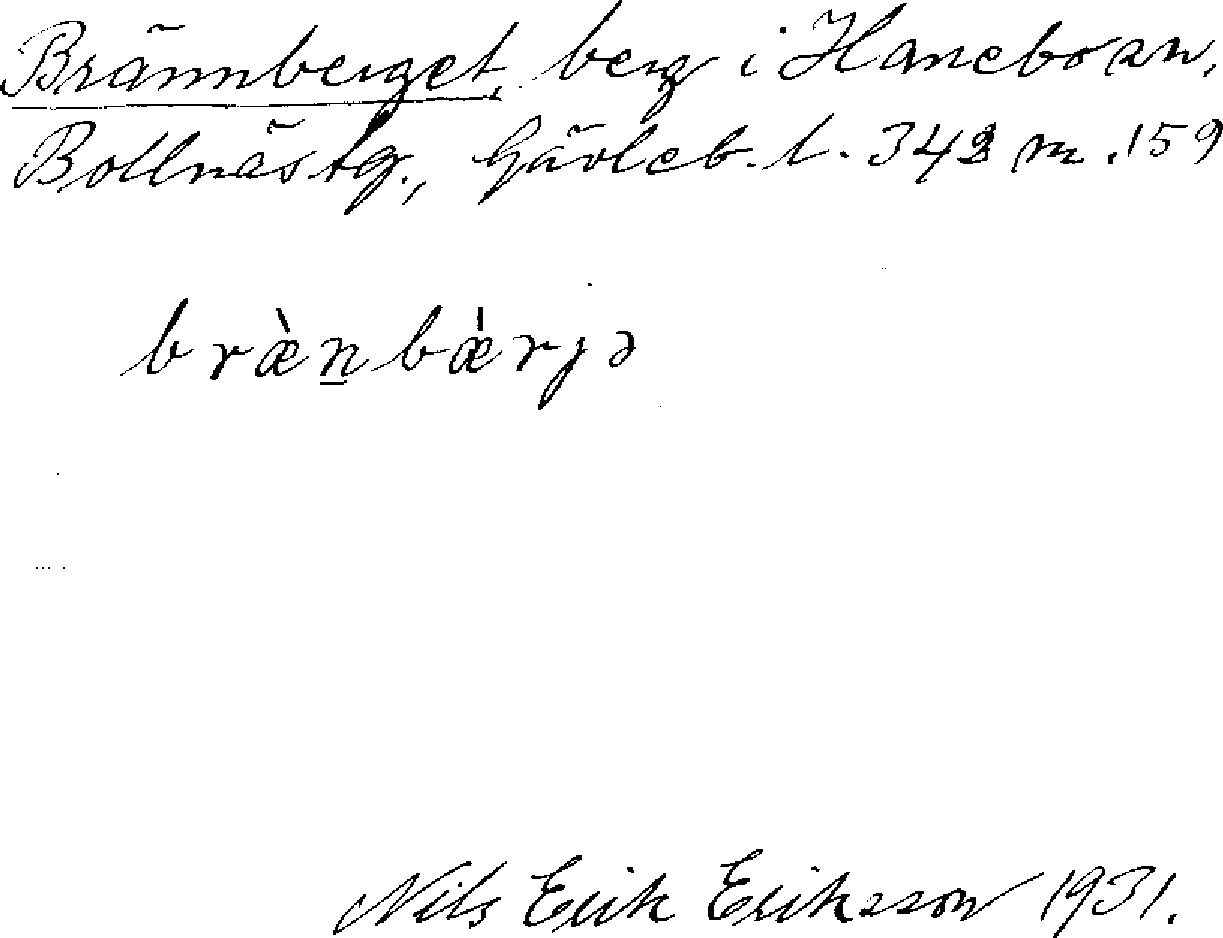 Brännberget, berg i Hanebo sn,
Bollnästg., Gävleb. l. 342 m. 159
bræ̀n̲bæ̍rjə
Nils Erik Eriksson 1931.